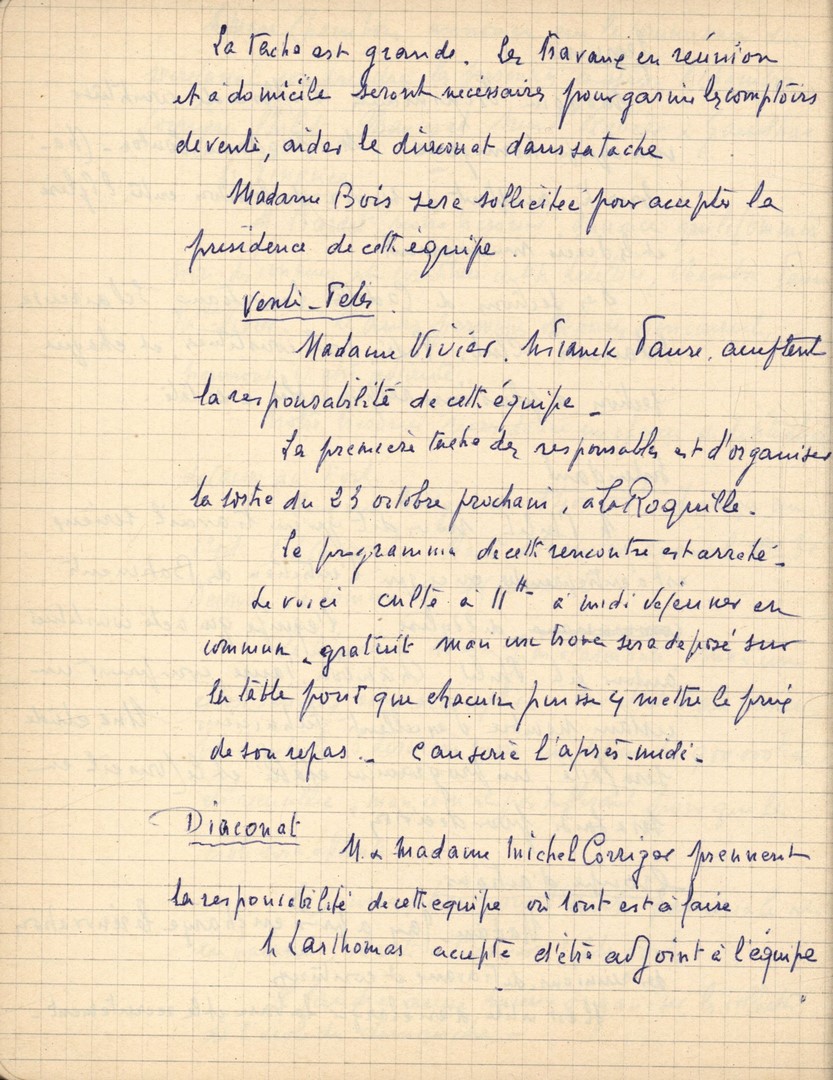 La tache est grande. Les travaux en réunion
et à domicile seront nécessaires pour garnir les comptoirs
de vente, aider le diaconat dans sa tache
Madame Bois sera sollicitée pour accepter la
présidence de cette équipe.
Vente - Fetes
Madame Vivier, Faure, acceptent
la responsabilité de cette équipe -
La première tache des responsables est d'organiser
la sortie du 23 octobre prochain, à La Roquille.
Le programme de cette rencontre est arreté -
Le voici culte à 11H - à midi déjeuner en
commun - gratuit mais un tronc sera déposé sur
la table pour que chacun puisse y mettre le prix
de son repas. - Causerie l'après-midi -
Diaconat
M. & Madame Michel Corriger prennent
la responsabilité de cette equipe où tout est à faire
M Lasthomas accepte d'être adjoint à l'équipe